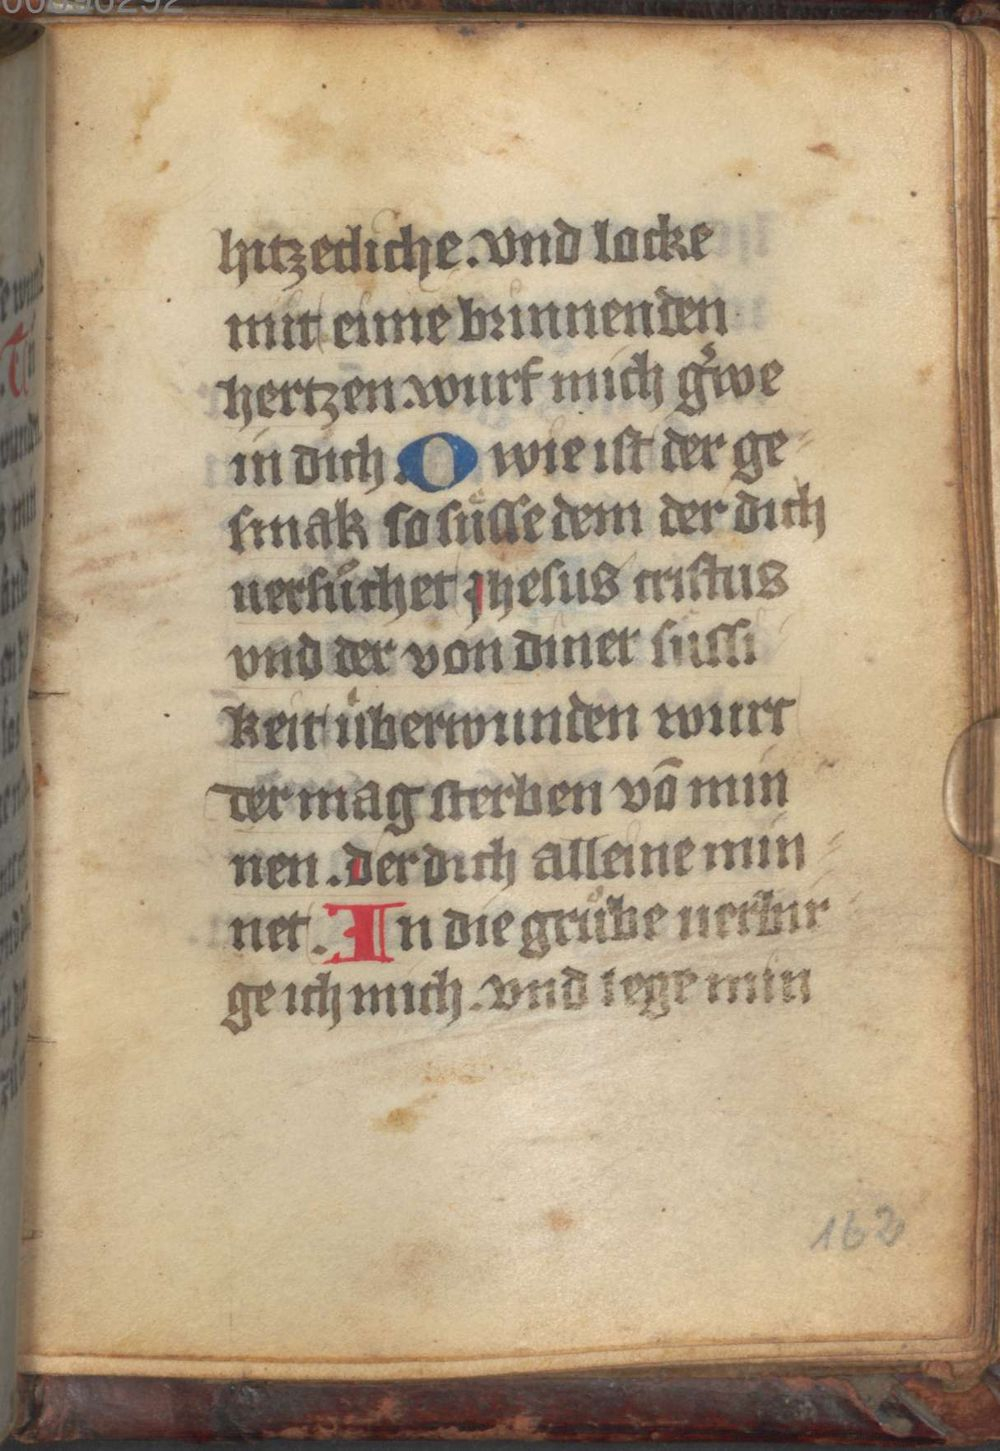 hitzecliche. vnd locke
mit eime brinnenden
hertzen. wurf mich gͤwe
in dich. O wie ist der ge
smak so suͤsse dem der dich
uersuͦchet Jhesus cristus
vnd der von diner sussi
keit uͤberwunden wurt
der mag sterben võ min
nen. der dich alleine min
net. In die gruͦbe uerbir
ge ich mich. vnd lege min
162